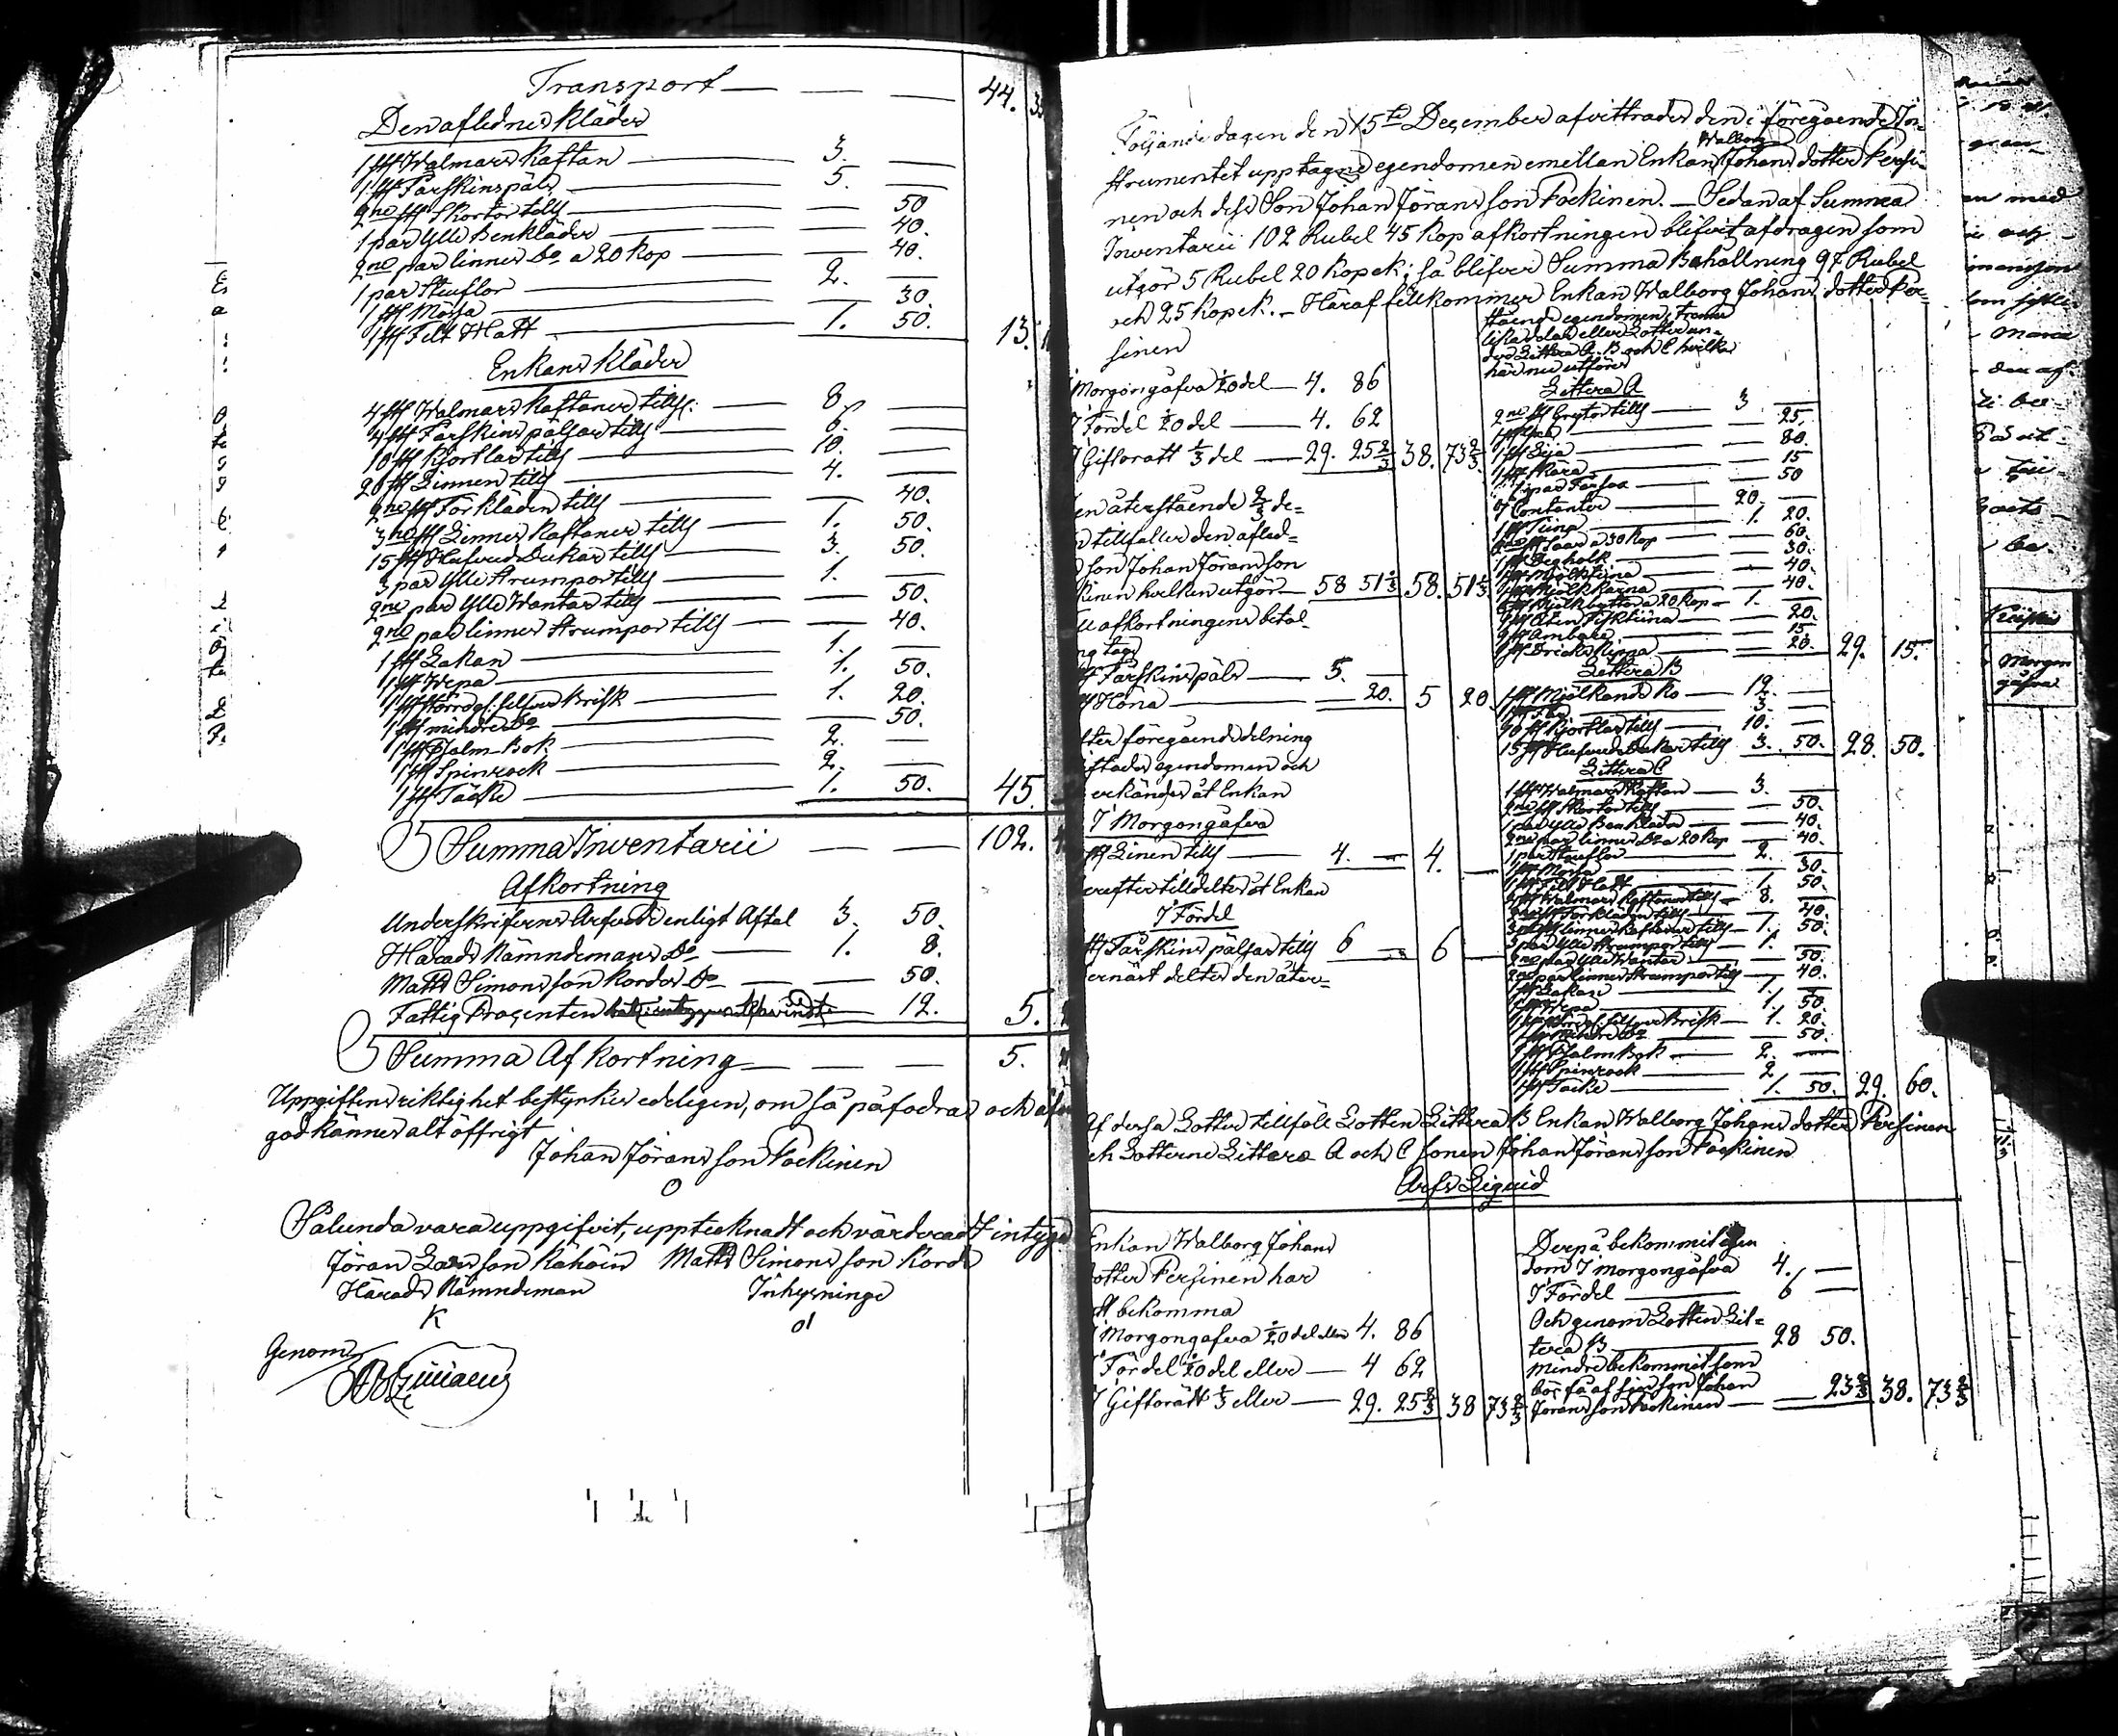 Transport — — — 44.
Den aflednes kläder
1 st Walmars Kaftan — 3. —
1 st Fårskinspäls — 5. —
2ne st Skortor tills — — 50
1 par Ylle Benkläder — — 40.
2ne par linnes Do a 20 Kop — — 40.
1 par Stuflor — 2. —
1 st Mössa — — 30.
1 st Felt Hatt — 1. 50. 13.
Enkans Kläder
4 st Walmars Kaftaner tills: — 8 —
4 st Fårskins pälsar tills — 6. —
10 st Kjortlar tills — 10. —
20 st Linnen tills — 4. —
2ne st Förkläden tills — — 40.
3ne st Linnes Kaftaner tills — 1. 50.
15 st Hufvud Dukar tills — 3. 50.
3 par Ylle Strumpor tills — 1. —
2ne par Ylle Wantar tills — — 50.
2ne par linnes Strumpor tills — — 40.
1 st Lakan — 1. —
1 st Wepa — 1. 50.
1 st större silfver Brisk — 1. 20.
1 st mindre Do — — 50.
1 st Psalm Bok — 2. —
1 st Spinrock — 2. —
1 st Täcke — 1. 50. 45.
Summa Inventarii — — 102.
Afkortning
Underskrifvens Arfvode enligt Aftal 3. 50.
Härads Nämndemans Do — 1. 8.
Matts Simonsson Kordes Do — — 50.
Fattig Procenten — 12. 5.
Summa Afkortning — — — 5.
Uppgiftens riktighet bestyrkes edeligen, om så påfodras och
godkännes alt öffrigt
Johan Jöransson Pockinen
Sålunda vara uppgifvit, upptecknadt och värderadt intyga
Jöran Larsson Kähöin Matts Simonsson Korde
Härads Nämndeman Inhysninge
K
Genom
Följande dagen den 15de December afvittrades den i föregående In-
Walborg
strumentet upptagne egendomen emellan Enkan Johans dotter Persi-
nen och dess Son Johan Jöransson Pockinen. — Sedan af Summa
Inventarii 102 Rubel 45 Kop afkortningen blifvit afdragen som
utgör 5 Rubel 20 Kopek; så blifver Summa Behållning 97 Rubel
och 25 Kopek. — Häraf tillkommer Enkan Walborg Johans dotter Per-
sinen
Morgongåfva 1/20 del — 4. 86
I Fördel 1/20 del — 4. 62
I Giftorätt 1/3 del — 29. 25 2/3 38. 73 2/3
en återstående 2/3 de-
tillfaller den afled-
son Johan Jöransson
kinen hvilken utgör — 58 51 1/3 58. 51 1/3
afkortningens betal-
ng tags
st Fårskinspäls — 5. —
Höna — 20. 5 20
fter föregående delning
egendomen och
erkändes åt Enkan
I Morgongåfva
st Linen tills — 4. — 4. —
erefter tilldeltes åt Enkan
I Fördel
st Fårskins pälsar tills 6 — 6 —
ernäst deltes den åter-
stående egendomen, i trenne
lika delar eller Lotter un-
der Littera A. B och C hvilka
här nu utföres
Littera A
2ne st tills — 3 —
25.
1 st Lija — 80.
1 st Skära — 15
50
Contanter — 20. —
1 st Tina — 1. 20.
Saar a 30 Kop — 60.
1 st Degholk — 30.
40.
1 st Mjölk Kärna — 40.
a 20 Kop — 1. —
1 st Öten Fisktiina — 20.
1 st Ämbare — 15.
1 st Dricks Kippa — 20. 29. 15.
Littera B
1 st Mjölkande Ko — 12. —
1 st Får — 3. —
10 st Kjortlar tills — 10. —
15 st Hufvud Dukar tills 3. 50. 28. 50.
Littera C
1 st Walmars Kaftan — 3. —
2ne st Skortor tills — 50.
1 par Ylle Benkläder — 40.
2ne par linnes Do a 20 Kop — 40.
1 par Stuflor — 2. —
1 st Mössa — 30.
1 st Felt Hatt — 1. 50.
4 st Walmars Kaftaner tills — 8. —
2ne st Förkläden tills — 40.
3ne st linnes Kaftaner tills — 1. 50.
3 par Ylle Strumpor tills — 1. —
2ne par Ylle Wantar — 50.
2ne par linnes Strumpor tills — 40.
1 st Lakan — 1. —
1 st Wepa — 1. 50.
1 st större silfver Brisk — 1. 20.
1 st mindre Do — 50.
1 st Psalm Bok — 2. —
1 st Spinrock — 2 —
1 st Täcke — 1. 50. 29. 60.
Af dessa Lotter tillföll Lotten Littera B Enkan Walborg Johans dotter Persinen
och Lotterne Littera A och C sonen Johan Jöransson Pockinen
Arfs Liquid
Enkan Walborg Johans
dotter Persinen har
att bekomma
I Morgongåfva 1/20 del eller 4. 86
I Fördel 1/20 del eller — 4 62
I Giftorätt 1/3 eller — 29. 25 2/3 38 73 2/3
Derpå bekommit egen
dom I morgongåfva 4. —
I Fördel — 6 —
Och genom Lotten Lit-
tera B — 28 50.
Mindre bekommit som
bör få af sin son Johan
Jöransson Pockinen — — 23 2/3 38. 73 2/3